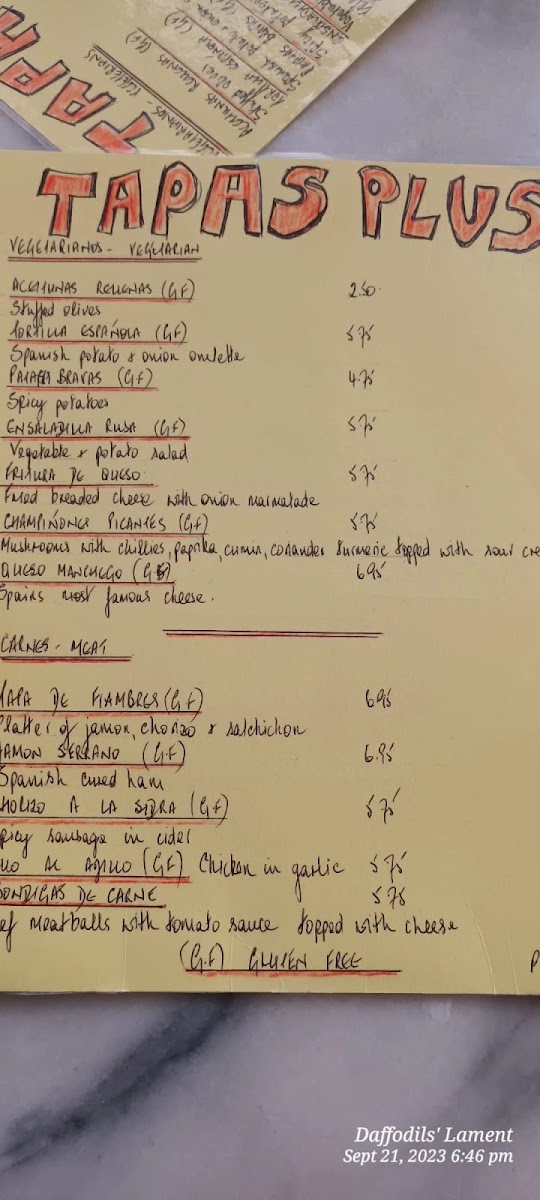 TAPAS PLUS
VEGETARIANOS - VEGETARIAN
ACEITUNAS RELLENAS (G.F) 2.50
Stuffed olives
TORTILLA ESPAÑOLA (G.F) 5.75
Spanish potato & onion omelette
PATATAS BRAVAS (G.F) 4.75
Spicy potatoes
ENSALADILLA RUSA (G.F) 5.75
Vegetable & potato salad
FRITURA DE QUESO 5.75
Fried breaded cheese with onion marmalade
CHAMPIÑONES PICANTES (G.F) 5.75
Mushrooms with chillies, paprika, cumin, coriander turmeric topped with sour cre
QUESO MANCHEGO (G.F) 6.95
Spains most famous cheese.
CARNES - MEAT
TAPA DE FIAMBRES (G.F) 6.95
Platter of jamon, chorizo & salchichon
JAMON SERRANO (G.F) 6.95
Spanish cured ham
HORIZO A LA SIDRA (G.F) 5.75
picy sausage in cider
LLO AL AJILLO (G.F) Chicken in garlic 5.75
BONDIGAS DE CARNE 5.75
ef meatballs with tomato sauce topped with cheese
(G.F) GLUTEN FREE
P
Daffodils' Lament
Sept 21, 2023 6:46 pm